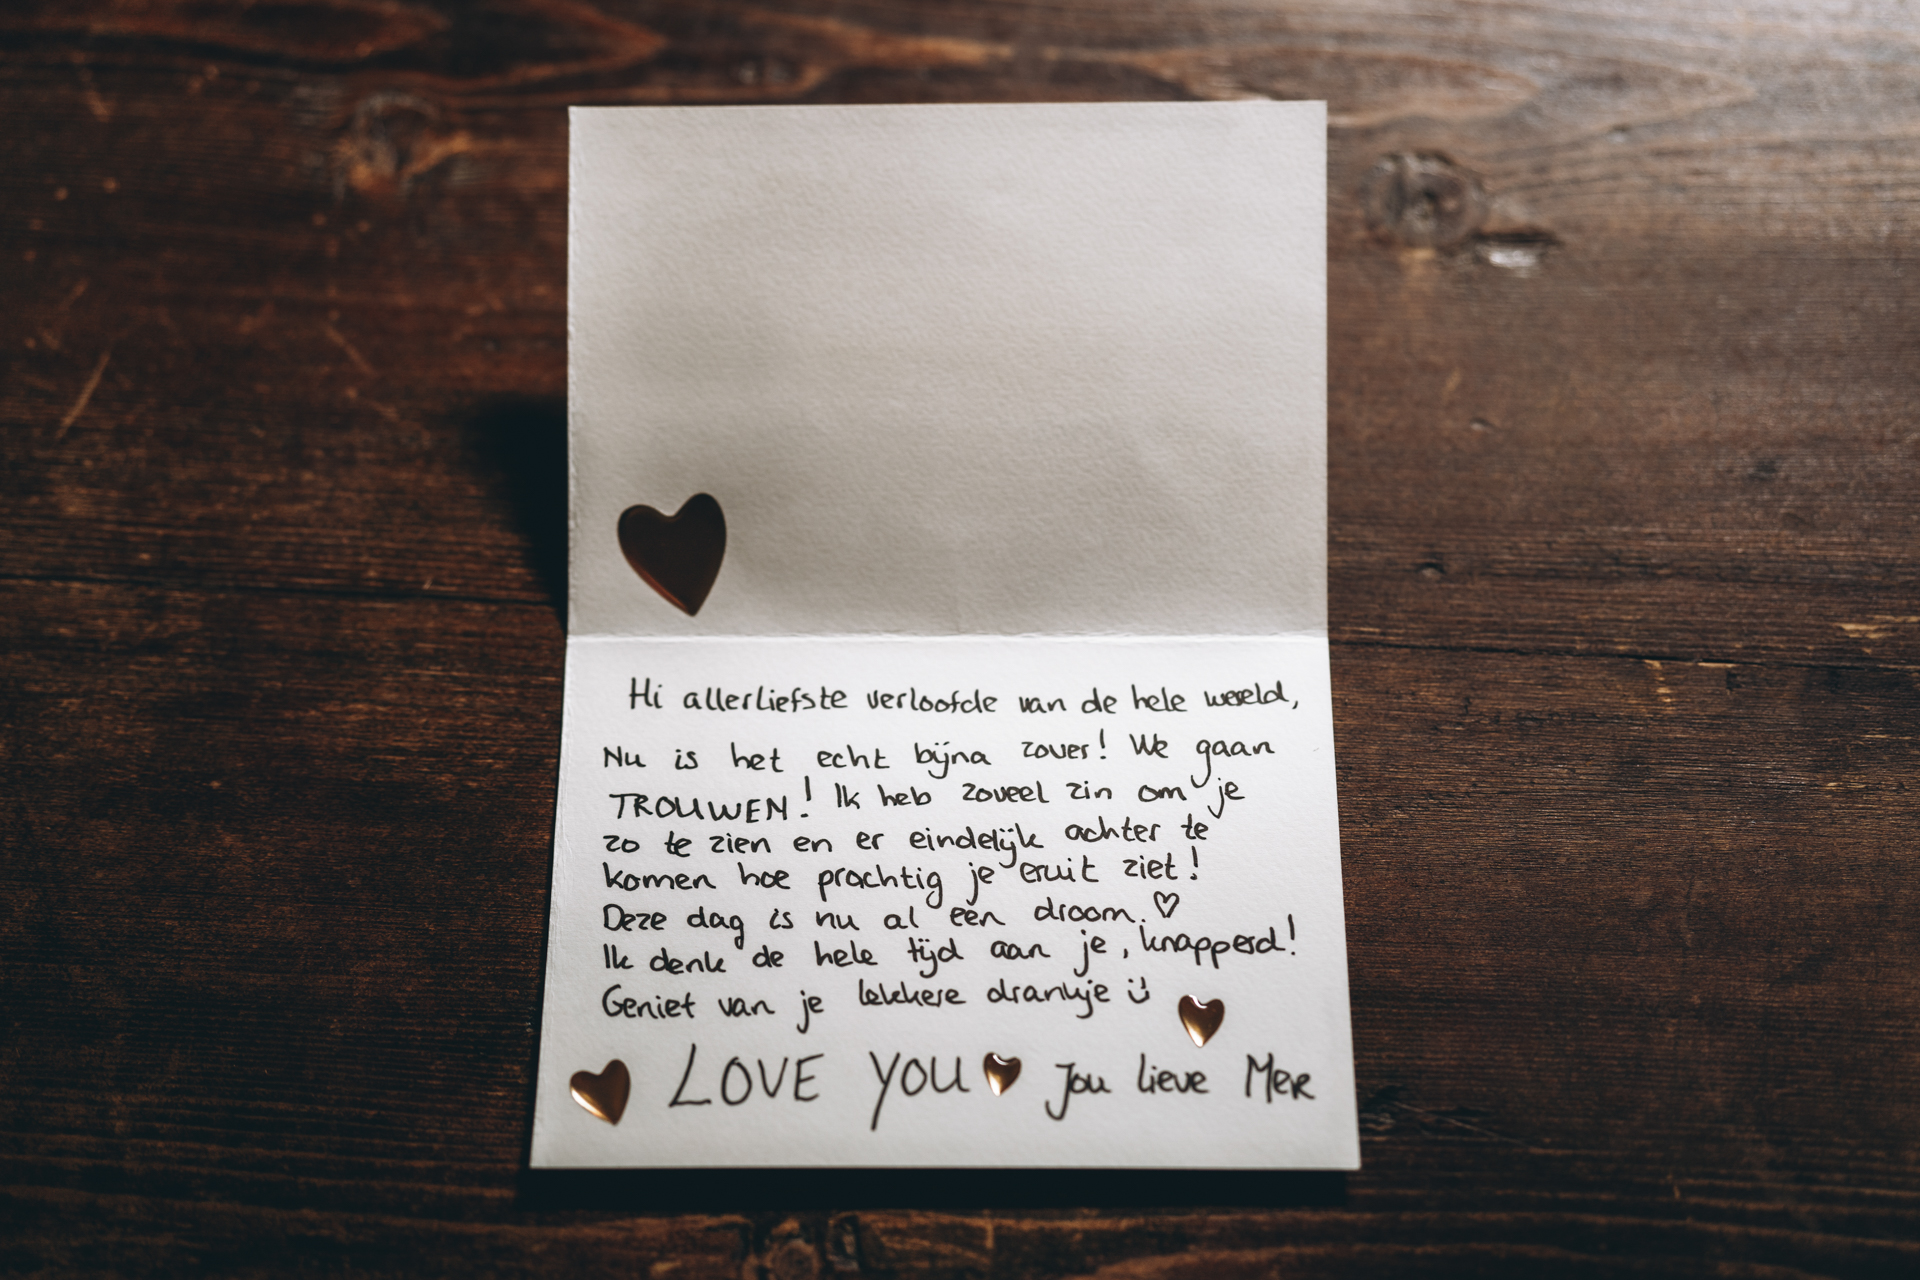 Hi allerliefste verloofde van de hele wereld,
Nu is het echt bijna zover! We gaan
TROUWEN! Ik heb zoveel zin om je
zo te zien en er eindelijk achter te
komen hoe prachtig je eruit ziet!
Deze dag is nu al een droom. ♡
Ik denk de hele tijd aan je, knapperd!
Geniet van je lekkere drankje ü
LOVE YOU Jou lieve Mer